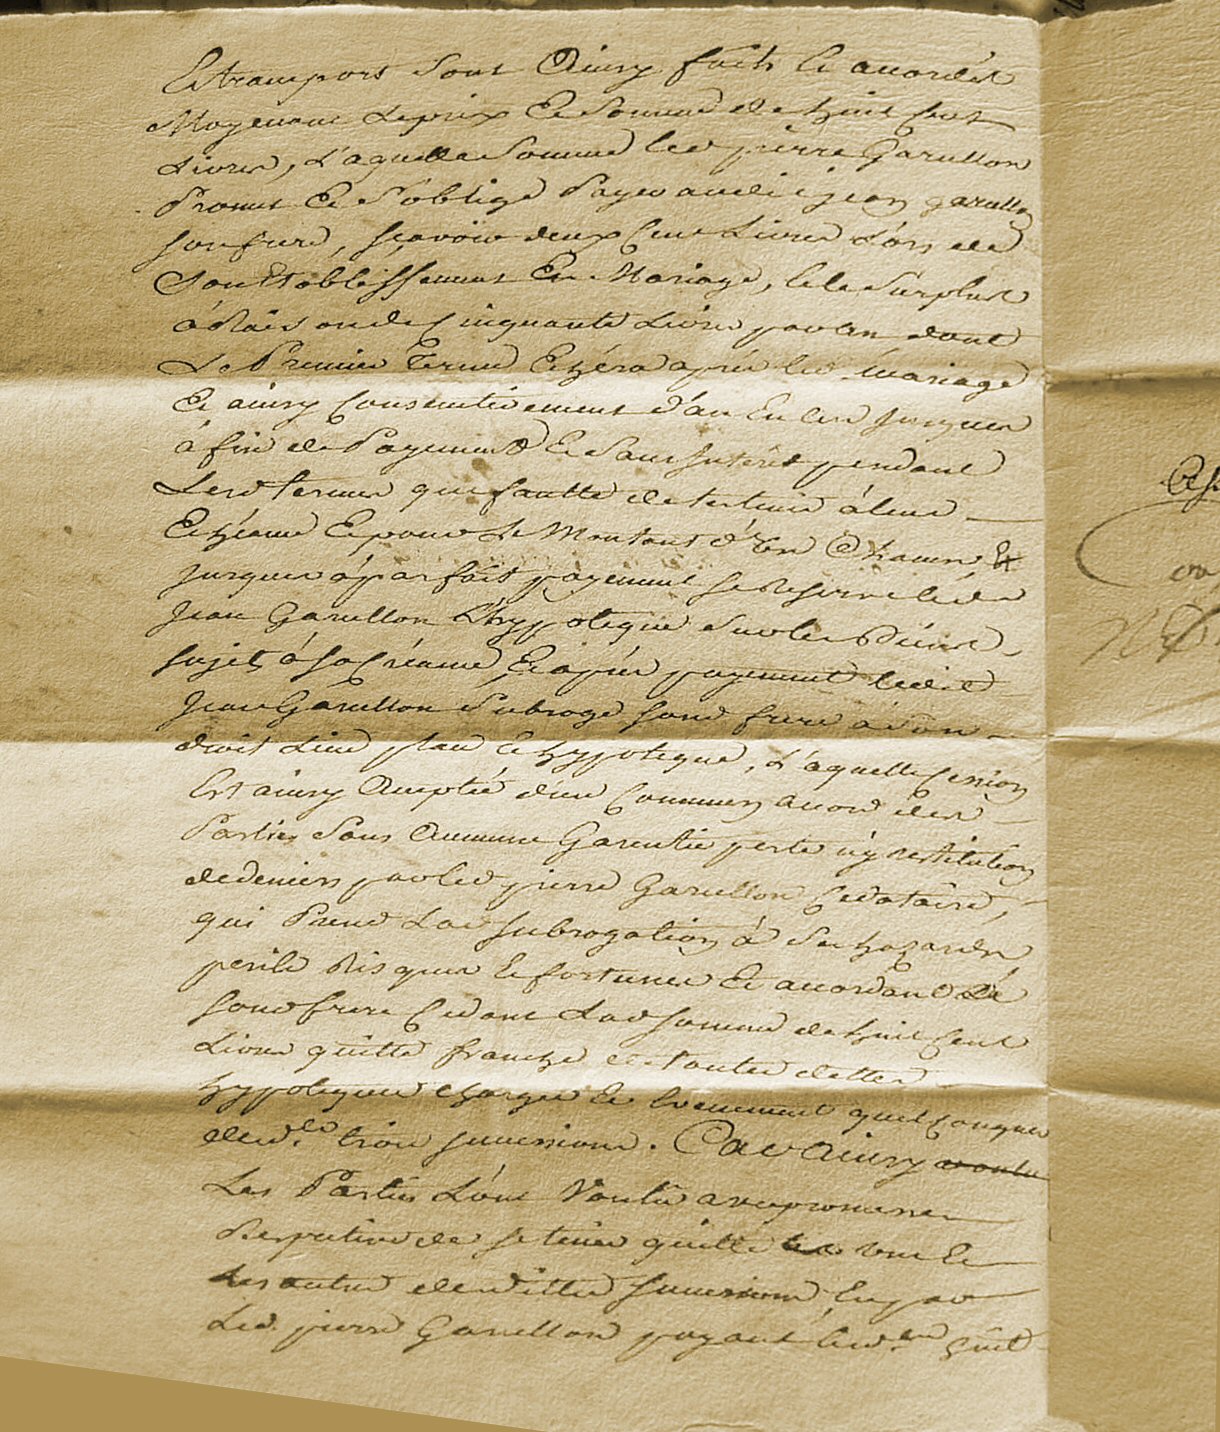 Et transport sont Ainsy faith Et acordés
Moyenant Le prix Et Somme de huit cent
Livres, L'aquelle Somme led pierre Garullon
Promet Et S'oblige Payer audit jean garullon
son frere, sçavoir deux Cent Livres Lors de
Son Etablissement En Mariage, & le Surplus
à Raison de Cinquante Livres par an dont
Le Premier Terme Echéra après led mariage
Et ainsy Consecutivement d'an En an jusques
à fin de Payement Et Sans Interêt pendant
Lesd termes que fautte de tertenir à leur
Echéance Et pour Le Montant d'Un Chacun Et
jusques à parfait payement se Reserve ledit
Jean Garullon L'hypoteque Sur les Pièces
sujets à sa Créance, Et après payement ledit
Jean Garullon Subroge sond frere à son
droit Lieu place Et hypoteque, L'aquelle Cession
Est ainsy Acceptée d'un Commun acord des
Parties Sans Aucune Garentie perte n'y restitution
de deniers par led pierre Garullon Cedataire,
qui Prend Lad subrogation à Ses hazards
perils Risques Et fortunes Et acordant Dé
sond frere Cedant Lad somme de huit Cent
Livres quitte franche de Toutes dettes
hypoteques charges Et Evenement quelconques
desd. trois successions. Car Ainsy voulu
Les Parties L'ont Voulu avec promesse
Respective de se tenir quitte les uns Et
Les autres desdittes successions, En par
Led. pierre Garullon payant lesd. huit